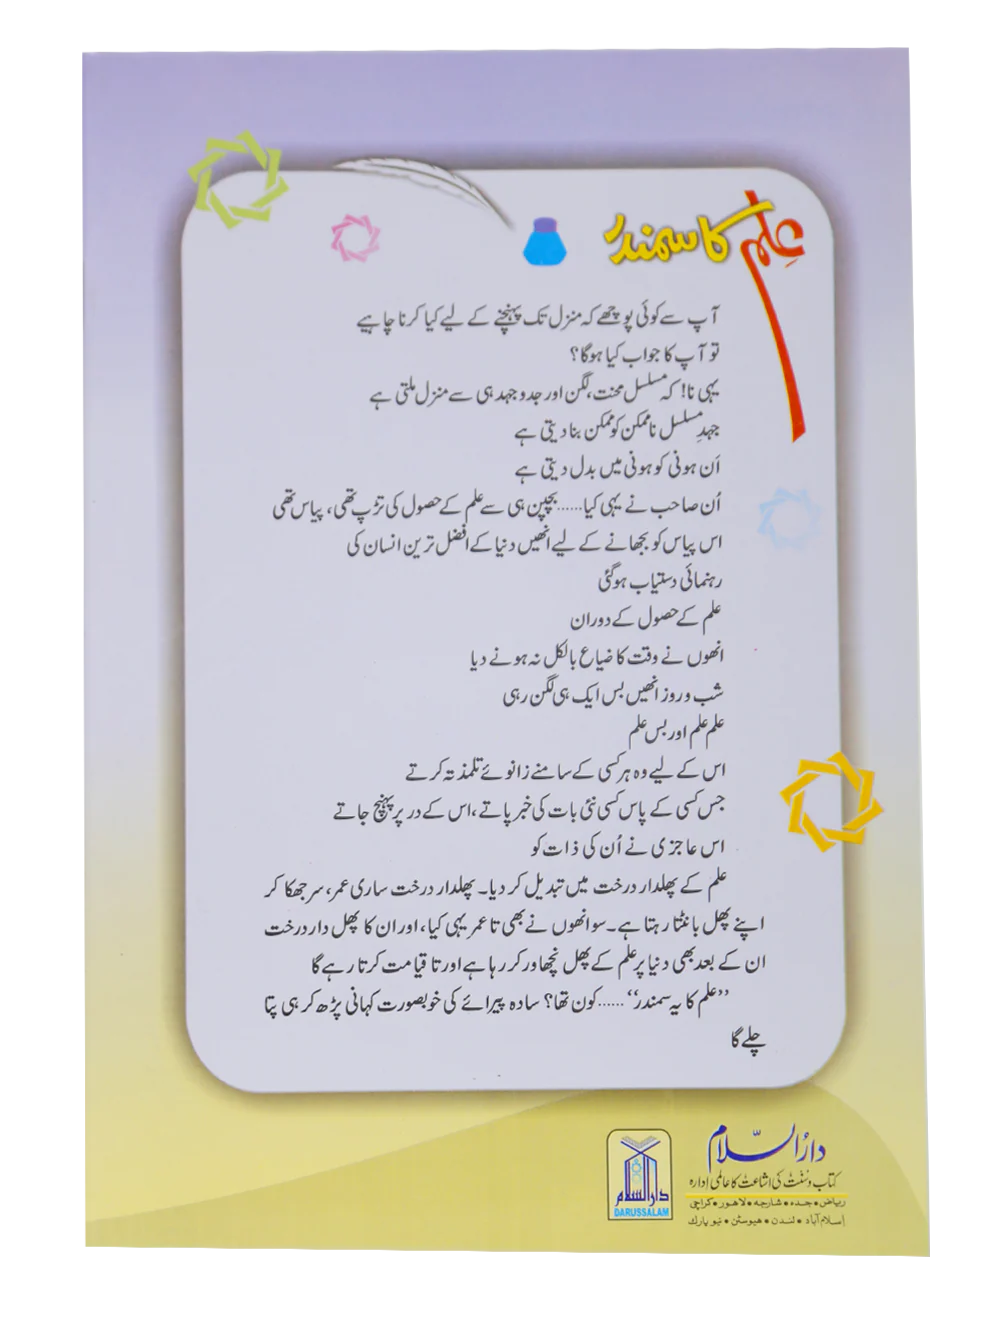 علم کا سمندر
آپ سے کوئی پوچھے کہ منزل تک پہنچنے کے لیے کیا کرنا چاہیے
تو آپ کا جواب کیا ہوگا؟
یہی نا! کہ مسلسل محنت، لگن اور جدوجہد ہی سے منزل ملتی ہے
جہدِ مسلسل ناممکن کو ممکن بنا دیتی ہے
اَن ہونی کو ہونی میں بدل دیتی ہے
اُن صاحب نے یہی کیا...... بچپن ہی سے علم کے حصول کی تڑپ تھی، پیاس تھی
اس پیاس کو بجھانے کے لیے انھیں دنیا کے افضل ترین انسان کی
رہنمائی دستیاب ہوگئی
علم کے حصول کے دوران
انھوں نے وقت کا ضیاع بالکل نہ ہونے دیا
شب و روز انھیں بس ایک ہی لگن رہی
علم علم اور بس علم
اس کے لیے وہ ہر کسی کے سامنے زانوئے تلمذ تہ کرتے
جس کسی کے پاس کسی نئی بات کی خبر پاتے، اس کے در پر پہنچ جاتے
اس عاجزی نے اُن کی ذات کو
علم کے پھلدار درخت میں تبدیل کر دیا۔ پھلدار درخت ساری عمر، سر جھکا کر
اپنے پھل بانٹتا رہتا ہے۔ سو انھوں نے بھی تا عمر یہی کیا، اور ان کا پھل دار درخت
ان کے بعد بھی دنیا پر علم کے پھل نچھاور کر رہا ہے اور تا قیامت کرتا رہے گا
”علم کا یہ سمندر“ ...... کون تھا؟ سادہ پیرائے کی خوبصورت کہانی پڑھ کر ہی پتا
چلے گا
دارالسلام
کتاب و سنت کی اشاعت کا عالمی ادارہ
ریاض • جدہ • شارجہ • لاہور • کراچی
اسلام آباد • لندن • ہیوسٹن • نیو یارک
دارالسلام
DARUSSALAM